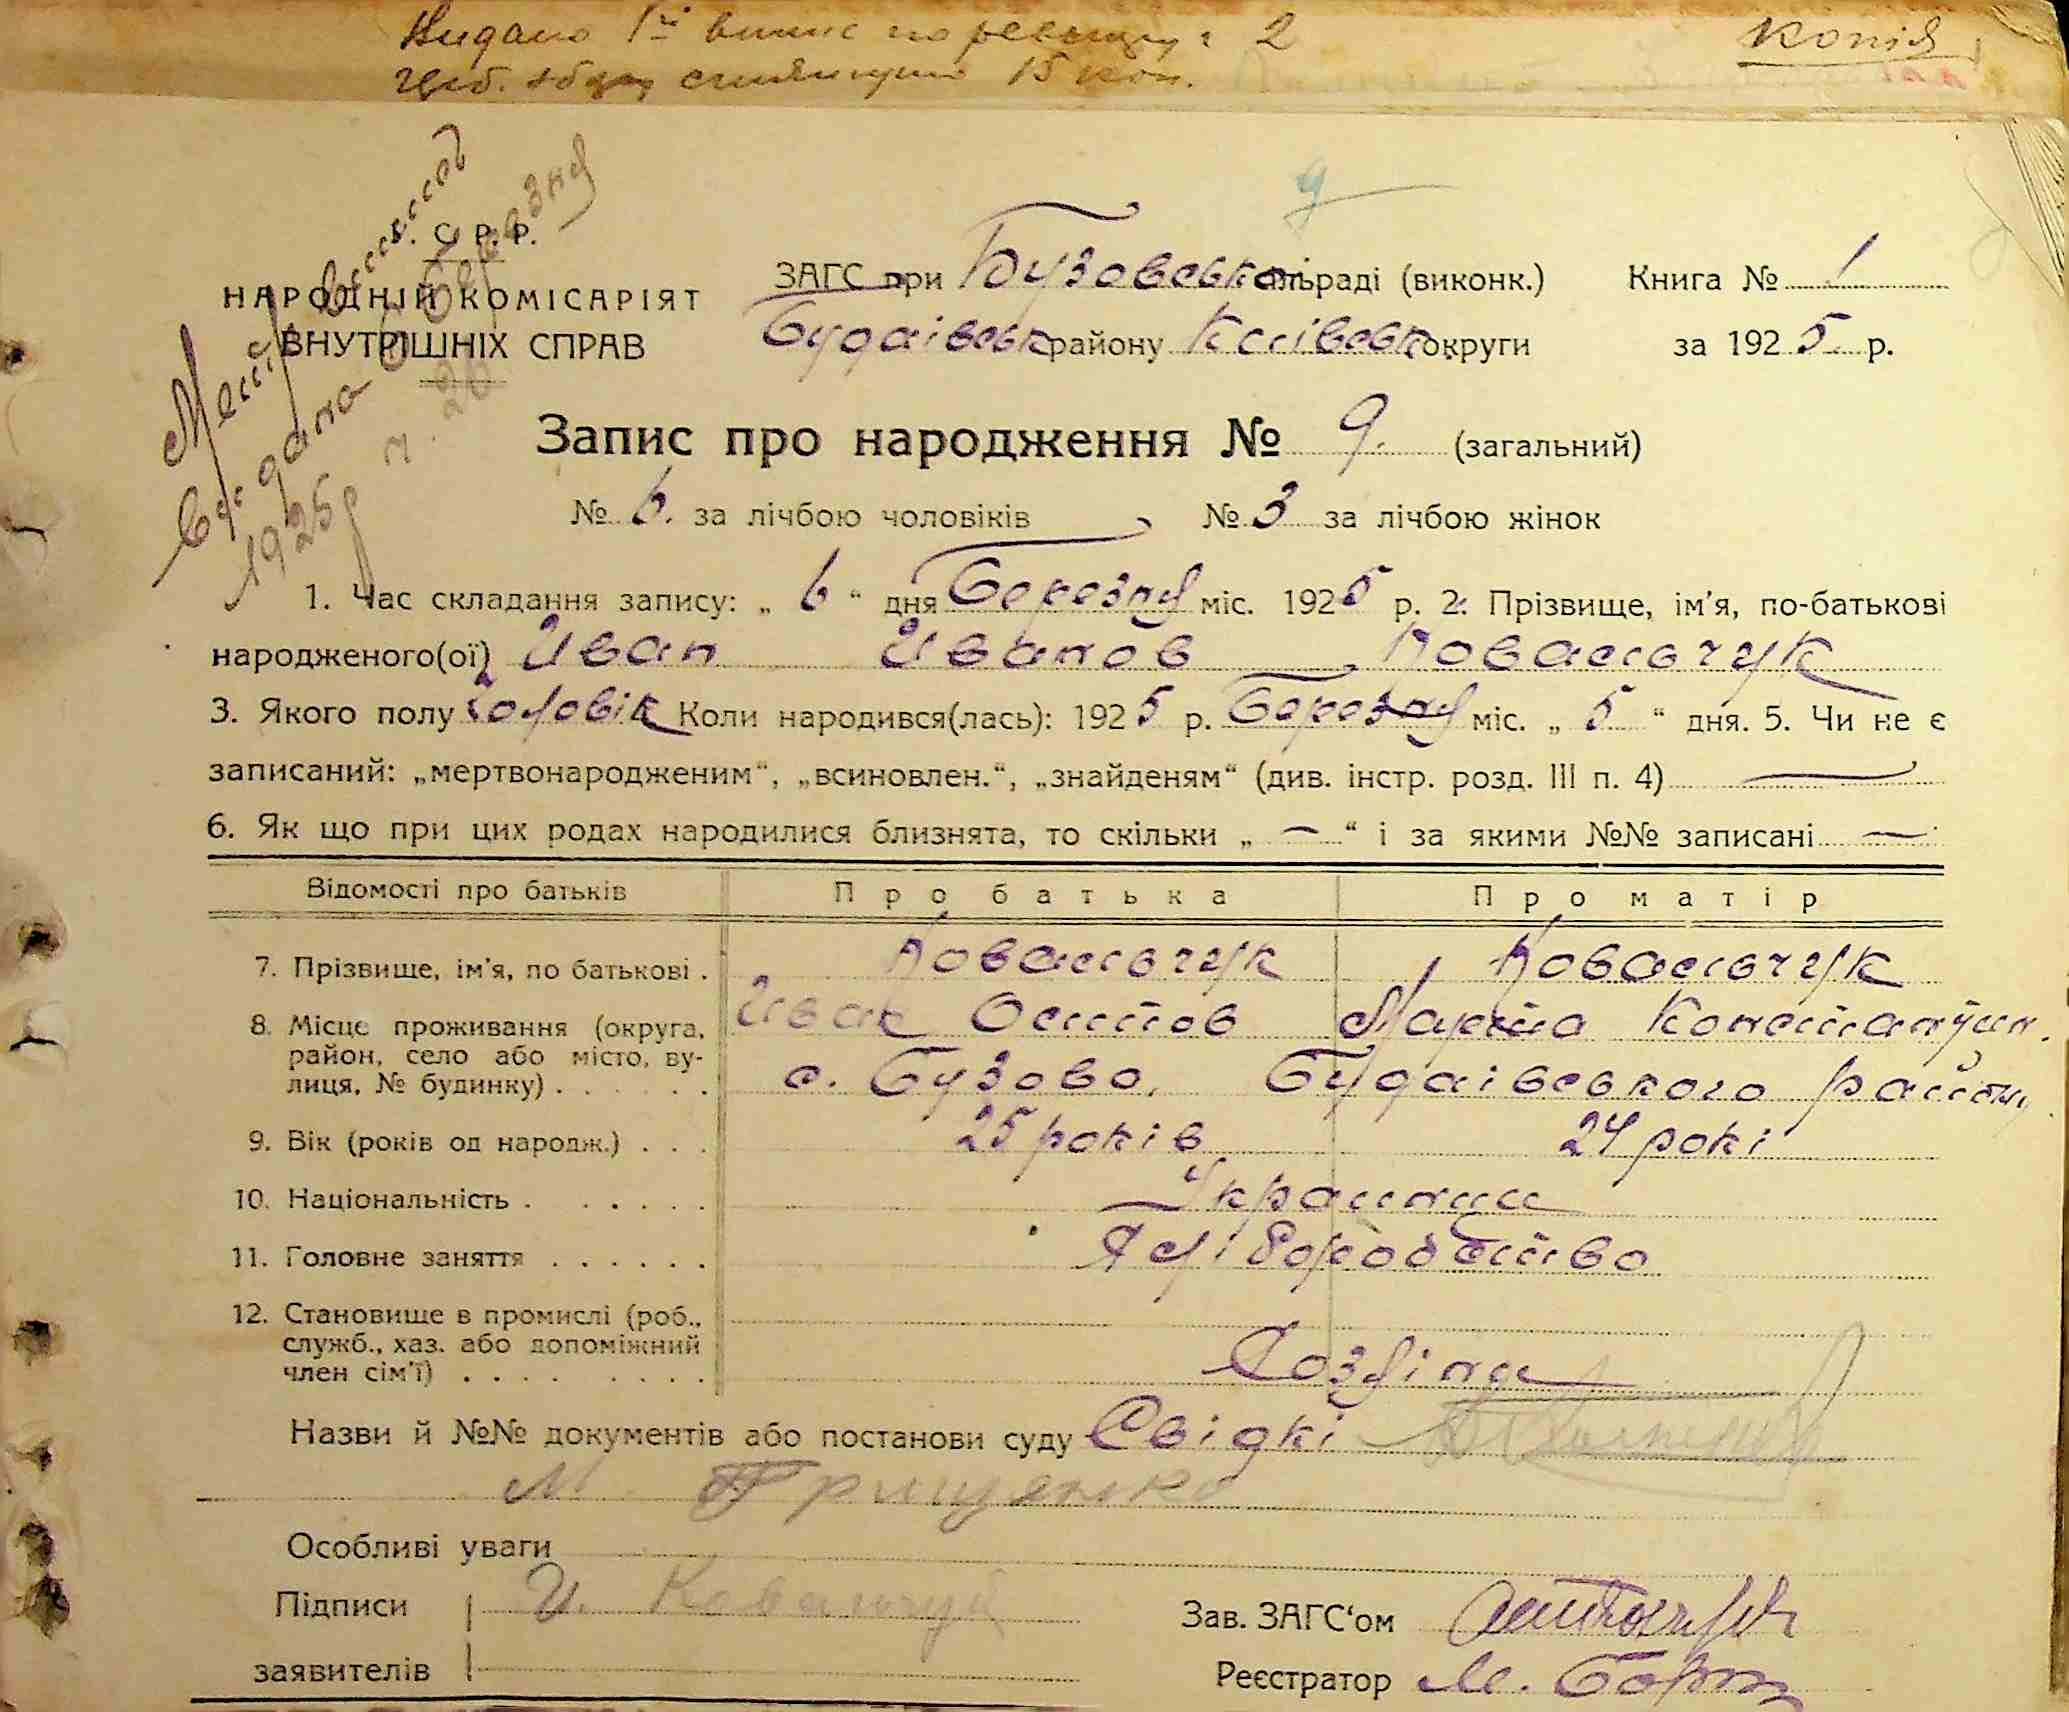 Видано 1й випис по реєстру 2
сплянути 15 коп.
Копія
Видана 6 Березня
1925 р.
У. С. Р. Р.
НАРОДНІЙ КОМІСАРІЯТ
ВНУТРІШНІХ СПРАВ
ЗАГС при Бузовській раді (виконк.) Книга № 1
Будаівськ району Київськ округи за 1925 р.
Запис про народження № 9. (загальний)
№ 6. за лічбою чоловіків № 3 за лічбою жінок
1. Час складання запису: „ 6 “ дня Березня міс. 1925 р. 2. Прізвище, ім'я, по-батькові
народженого(ої) Иван Иванов Ковальчук
3. Якого полу Чоловік Коли народився(лась): 1925 р. Березня міс. „ 5 “ дня. 5. Чи не є
записаний: „мертвонародженим“, „всиновлен.“, „знайденям“ (див. інстр. розд. III п. 4) —
6. Як що при цих родах народилися близнята, то скільки „ — “ і за якими №№ записані —
Відомості про батьків Про батька Про матір
7. Прізвище, ім'я, по батькові . Ковальчук Ковальчук
8. Місце проживання (округа, Иван Осипов Марія Константин.
район, село або місто, ву-
лиця, № будинку) . . . . . . с. Бузово, Будаівського району
9. Вік (років од народж.) . . . 25 років 24 рокі
10. Національність . . . . . . . Украинци
11. Головне заняття . . . . . . Хліборобство
12. Становище в промислі (роб.,
служб., хаз. або допоміжний Хозяіна
член сім'ї) . . . . . . . .
Назви й №№ документів або постанови суду Свідкі
М Грищенко
Особливі уваги
Підписи И. Ковальчук Зав. ЗАГС‘ом
заявителів Реєстратор М.